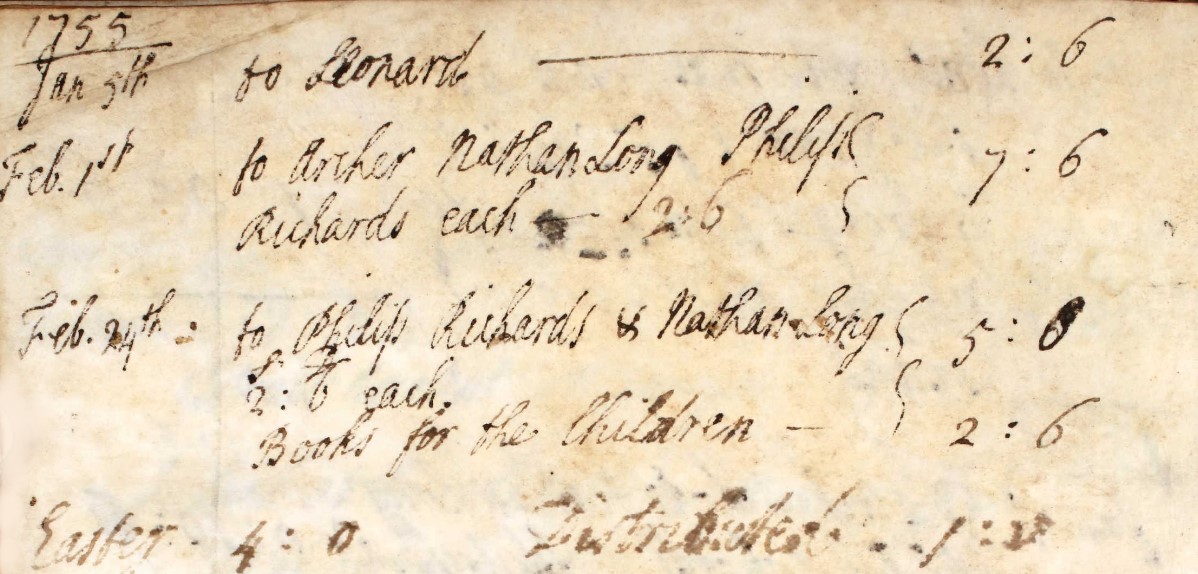 1755
Jan 5th to Leonard — 2 : 6
Feb. 1st to Archer Nathan Long Philip 7 : 6
Richards each — 2:6
Feb. 24th : to Philip Richards & Nathan Long 5 : 0
2 : 6 each.
Books for the Children — 2 : 6
Easter 4 : 0 Distributed